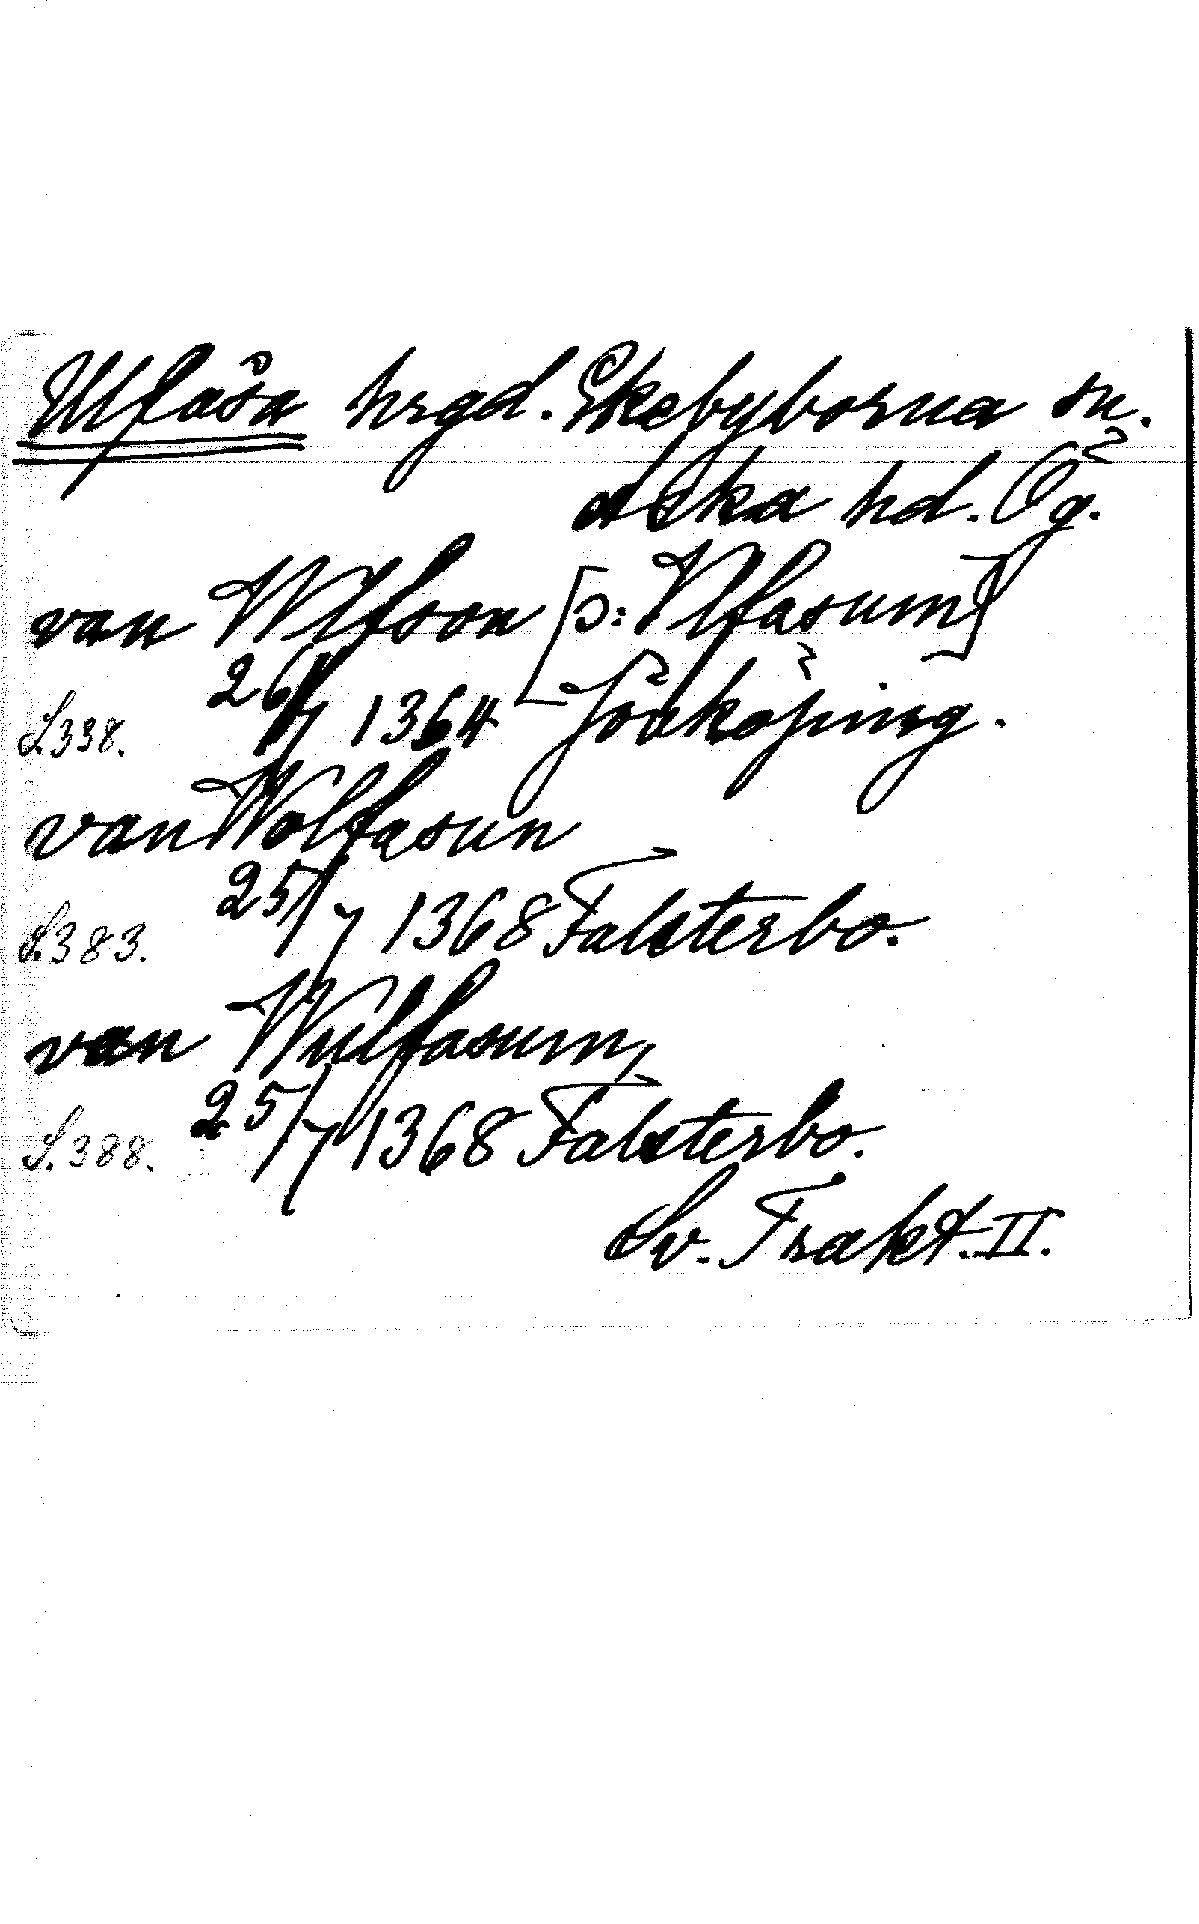 Ulfåsa hrgd. Ekebyborna sn.
Aska hd. Ög.
van Wlfson [ɔ: Vlfasum]
S. 338. 26/7 1364 Jönköping.
van Wolfasun
S. 383. 25/7 1368 Falsterbo.
van Wulfasum,
S. 388. 25/7 1368 Falsterbo.
Sv. Trakt. II.